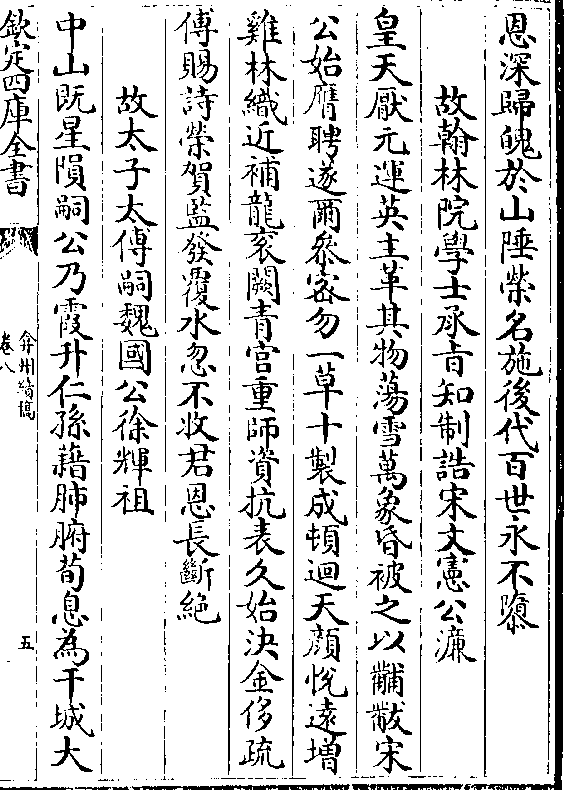 恩深歸魄於山陲榮名施後代百世永不隳
故翰林院學士承旨知制誥宋文憲公濂
皇天厭元運英主革其物蕩雪萬象昏被之以黼黻宋
公始膺聘遂爾參密勿一草十製成頓迴天顏悅遠增
雞林織近補龍衮闕青宫重師資抗表久始決金侈疏
傅賜詩榮賀監發覆水忽不收君恩長斷絶
故太子太傅嗣魏國公徐輝祖
中山既星隕嗣公乃霞升仁孫藉肺腑荀息為干城大
欽定四庫全書
弇州續稿
卷八
五